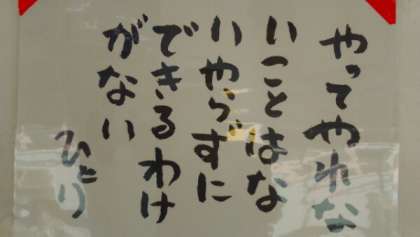 やってやれな
いことはな
いやらずに
できるわけ
がない
ひとり